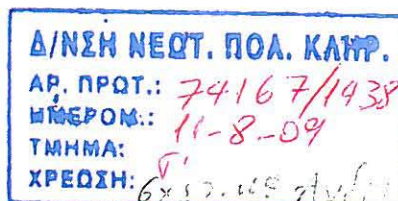 Δ/ΝΣΗ ΝΕΩΤ. ΠΟΛ. ΚΛΗΡ.
ΑΡ. ΠΡΩΤ.: 74167/1438
ΗΜΕΡΟΜ.: 11-8-09
ΤΜΗΜΑ: Γ'
ΧΡΕΩΣΗ: